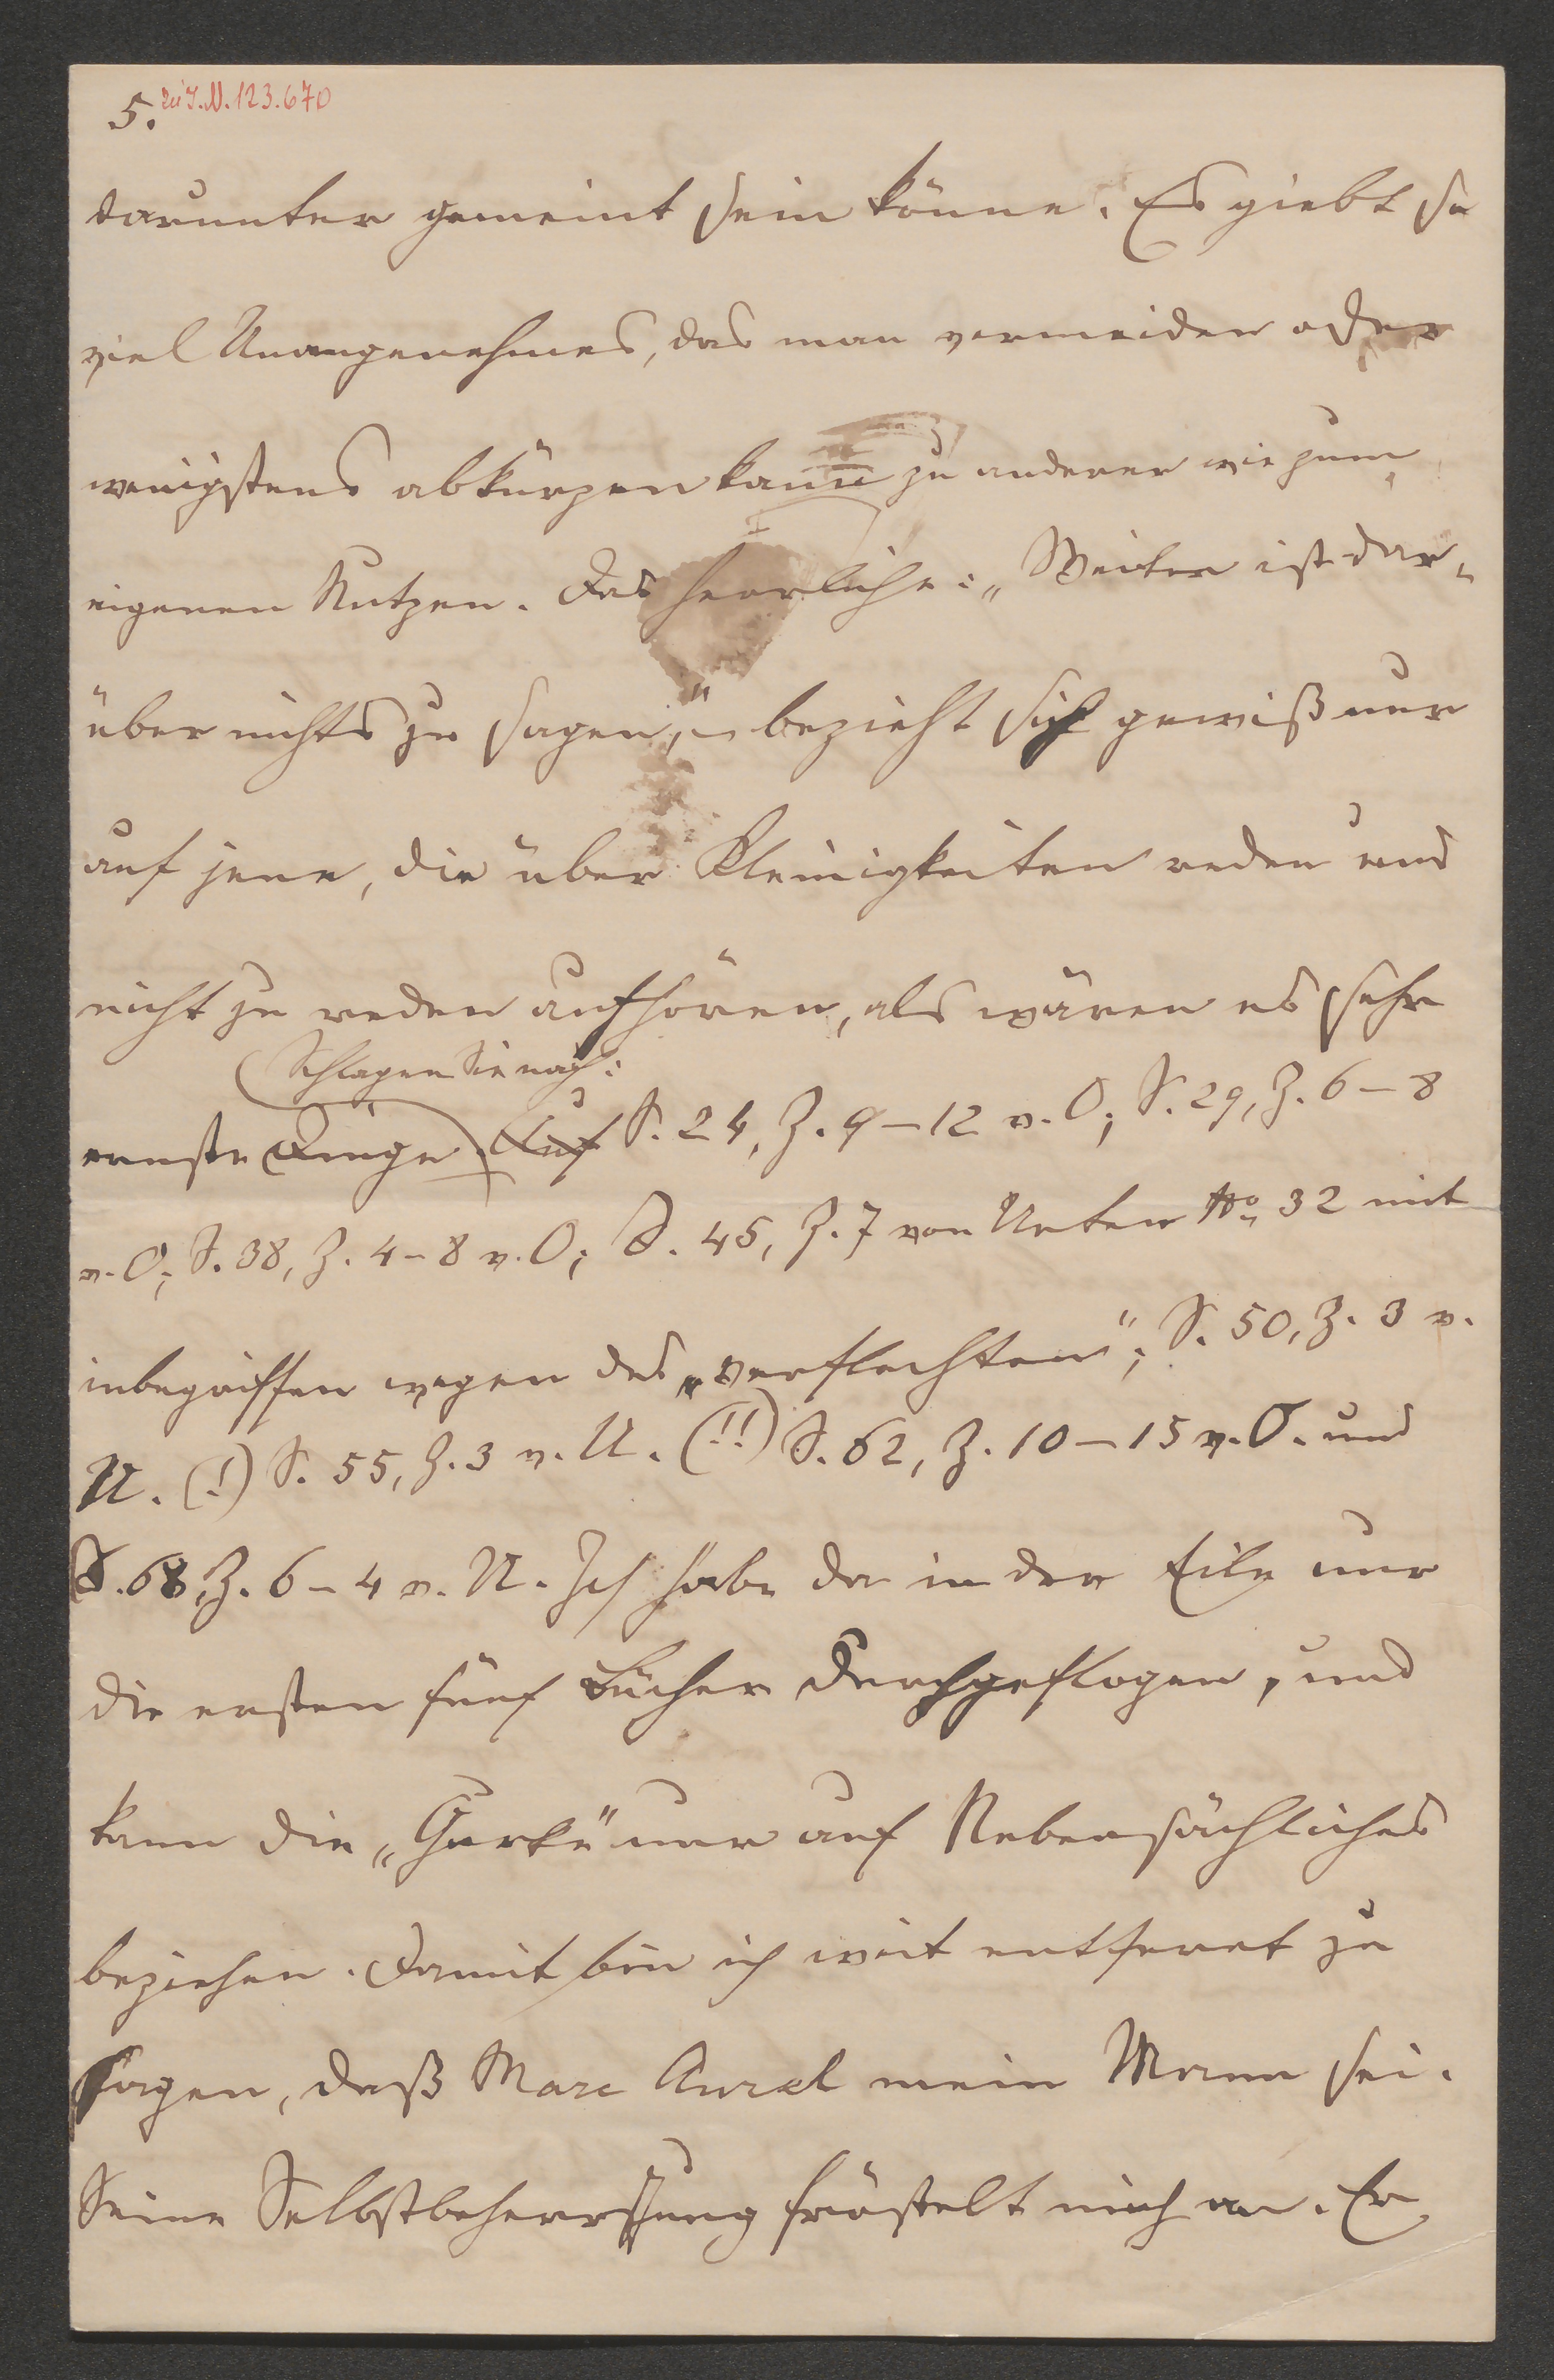 5. zu I.N. 123.670
darunter gemeint sein könne. Es giebt so
viel Unangenehmes, das man vermeiden oder
wenigstens abkürzen kann zu anderer wie zum
eigenen Nutzen. Das herrliche: „Weiter ist dar-
über nichts zu sagen," bezieht sich gewiß nur
auf jene, die über Kleinigkeiten reden und
nicht zu reden aufhören, als wären es sehr
Schlagen Sie nach:
ernste Dinge. Auf S. 24, Z. 9–12 v. O; S. 29, Z. 6–8
v. O; S. 38, Z. 4–8 v. O; S. 45, Z. 7 von Unten No 32 mit
inbegriffen wegen des „verflechten"; S. 50, Z. 3 v.
U. (!) S. 55, Z. 3 v. U. (!!) S. 62, Z. 10–15 v. O. und
S. 68, Z. 6–4 v. U. Ich habe da in der Eile nur
die ersten fünf Bücher durchgeflogen, und
kann die „Gurke" nur auf Nebensächliches
beziehen. Damit bin ich weit entfernt zu
sagen, daß Marc Aurel mein Mann sei.
Seine Selbstbeherrschung fröstelt mich an. Er